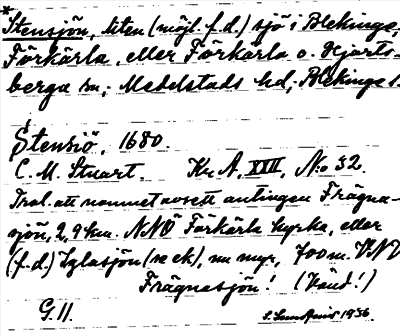 *
Stensjön, liten (möjl. f.d.) sjö i Blekinge,
Förkärla, eller Förkärla o. Hjorts-
berga sn; Medelstads hd; Blekinge l.
Stensiö, 1680.
C. M. Stuart. Kr. A, XXII, No 32.
Trol. att namnet avsett antingen Frägna-
sjön, 2,9 km. NNÖ Förkärla kyrka, eller
(f.d.) Iglasjön (se ek), nu myr, 700 m. VNV
Frägnasjön! (Vänd!)
G. 11. 1936.